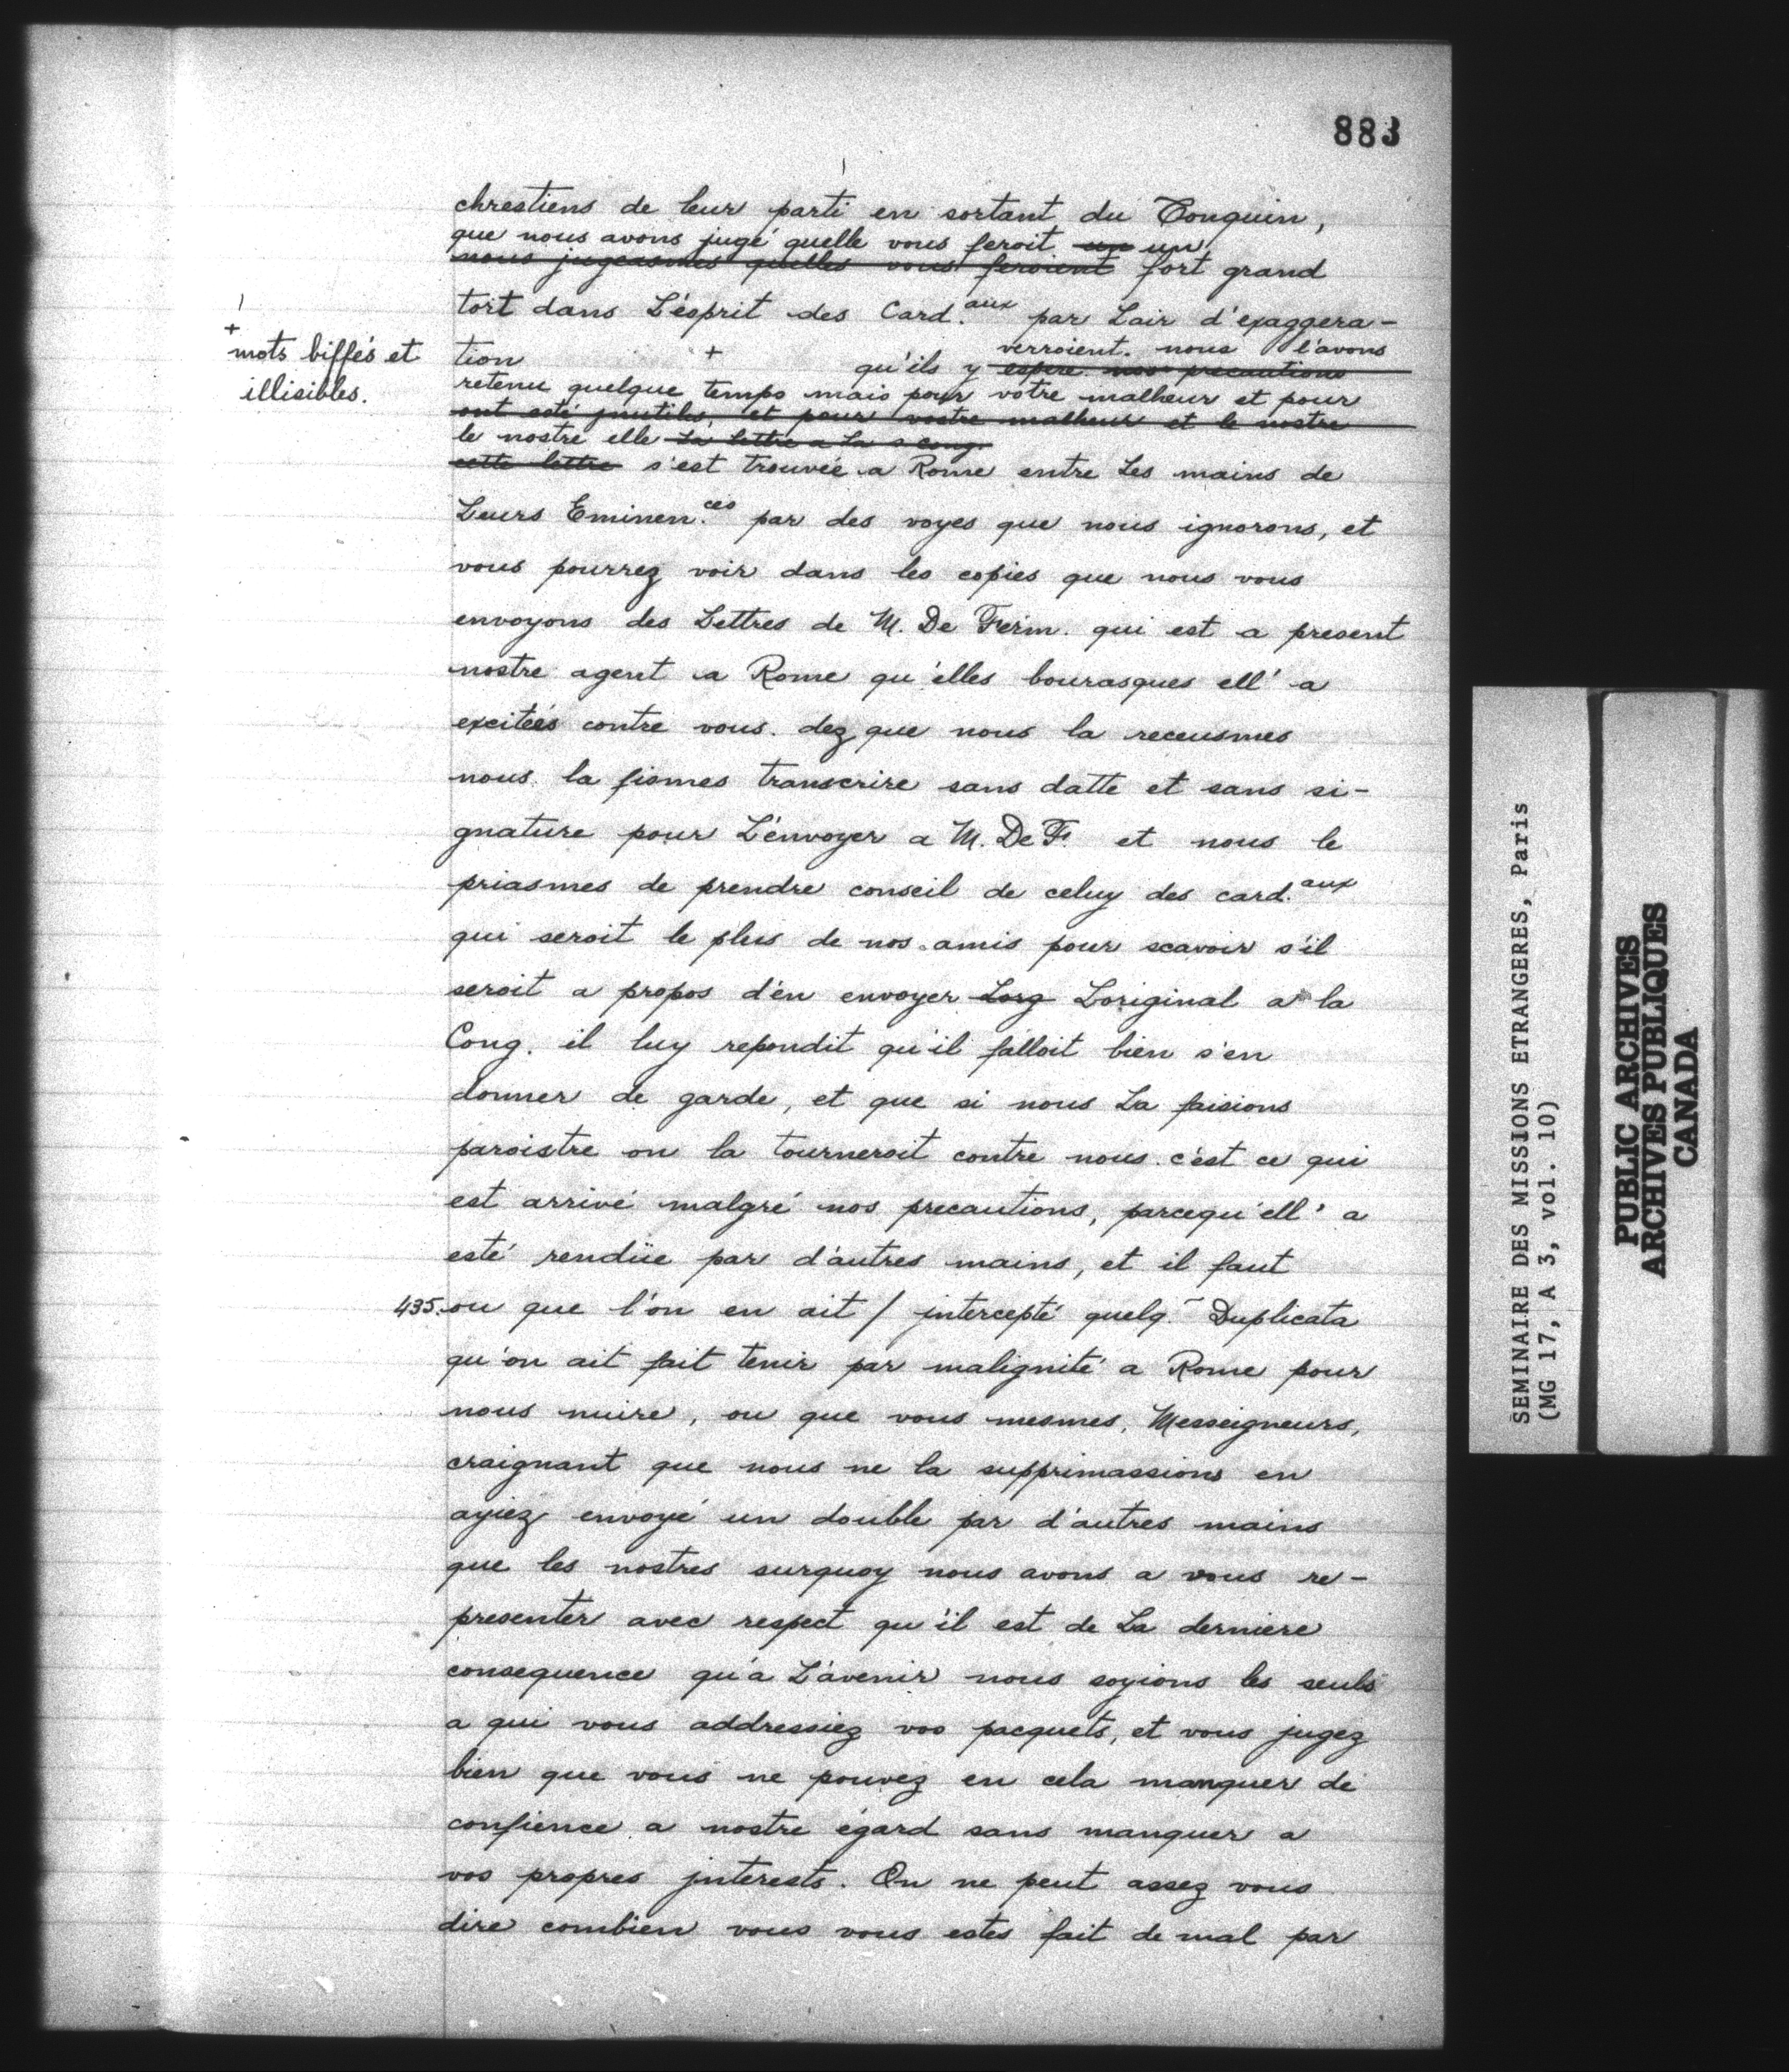 883
chrestiens de leur parti en sortant du Tonquin,
que nous avons jugé quelle vous feroit un un
nous jugeasmes quelles vous feroient fort grand
tort dans L'ésprit des Card.aux par Lair d'exaggera-
+
mots biffés et
illisibles.
verroient. nous l'avons
tion + qu'ils y espere nos precautions
retenu quelque temps mais pour votre malheur et pour
ont esté jnutiles, et pour vostre malheur et le nostre
le nostre elle la lettre a la s cong.
cette lettre s'est trouvée a Rome entre Les mains de
Leurs Eminen.ces par des voyes que nous ignorons, et
vous pourrez voir dans les copies que nous vous
envoyons des Lettres de M. De Ferm. qui est a present
nostre agent a Rome qu'elles bourasques ell' a
excitées contre vous. dez que nous la receusmes
nous la fismes transcrire sans datte et sans si-
gnature pour L'énvoyer a M. De F. et nous le
priasmes de prendre conseil de celuy des card.aux
qui seroit le plus de nos amis pour scavoir s'il
seroit a propos d'én envoyer Lorg Loriginal a la
Cong. il luy repondit qu'il falloit bien s'en
donner de garde, et que si nous La faisions
paroistre on la tourneroit contre nous. c'ést ce qui
est arrivé malgré nos precautions, parcequ'ell' a
esté rendüe par d'autres mains, et il faut
435. ou que l'on en ait / jntercepté quelq.~ Duplicata
qu'on ait fait tenir par malignité a Rome pour
nous nuire, ou que vous mesmes, Messeigneurs,
craignant que nous ne la supprimassions en
ayiez envoyé un double par d'autres mains
que les nostres surquoy nous avons a vous re-
presenter avec respect qu'il est de La derniere
consequence qu'a L'avenir nous soyions les seuls
a qui vous addressiez vos pacquets, et vous jugez
bien que vous ne pouvez en cela manquer de
confience a nostre égard sans manquer a
vos propres jnterests. On ne peut assez vous
dire combien vous vous estes fait de mal par
SEMINAIRE DES MISSIONS ETRANGERES, Paris
(MG 17, A 3, vol. 10)
PUBLIC ARCHIVES
ARCHIVES PUBLIQUES
CANADA